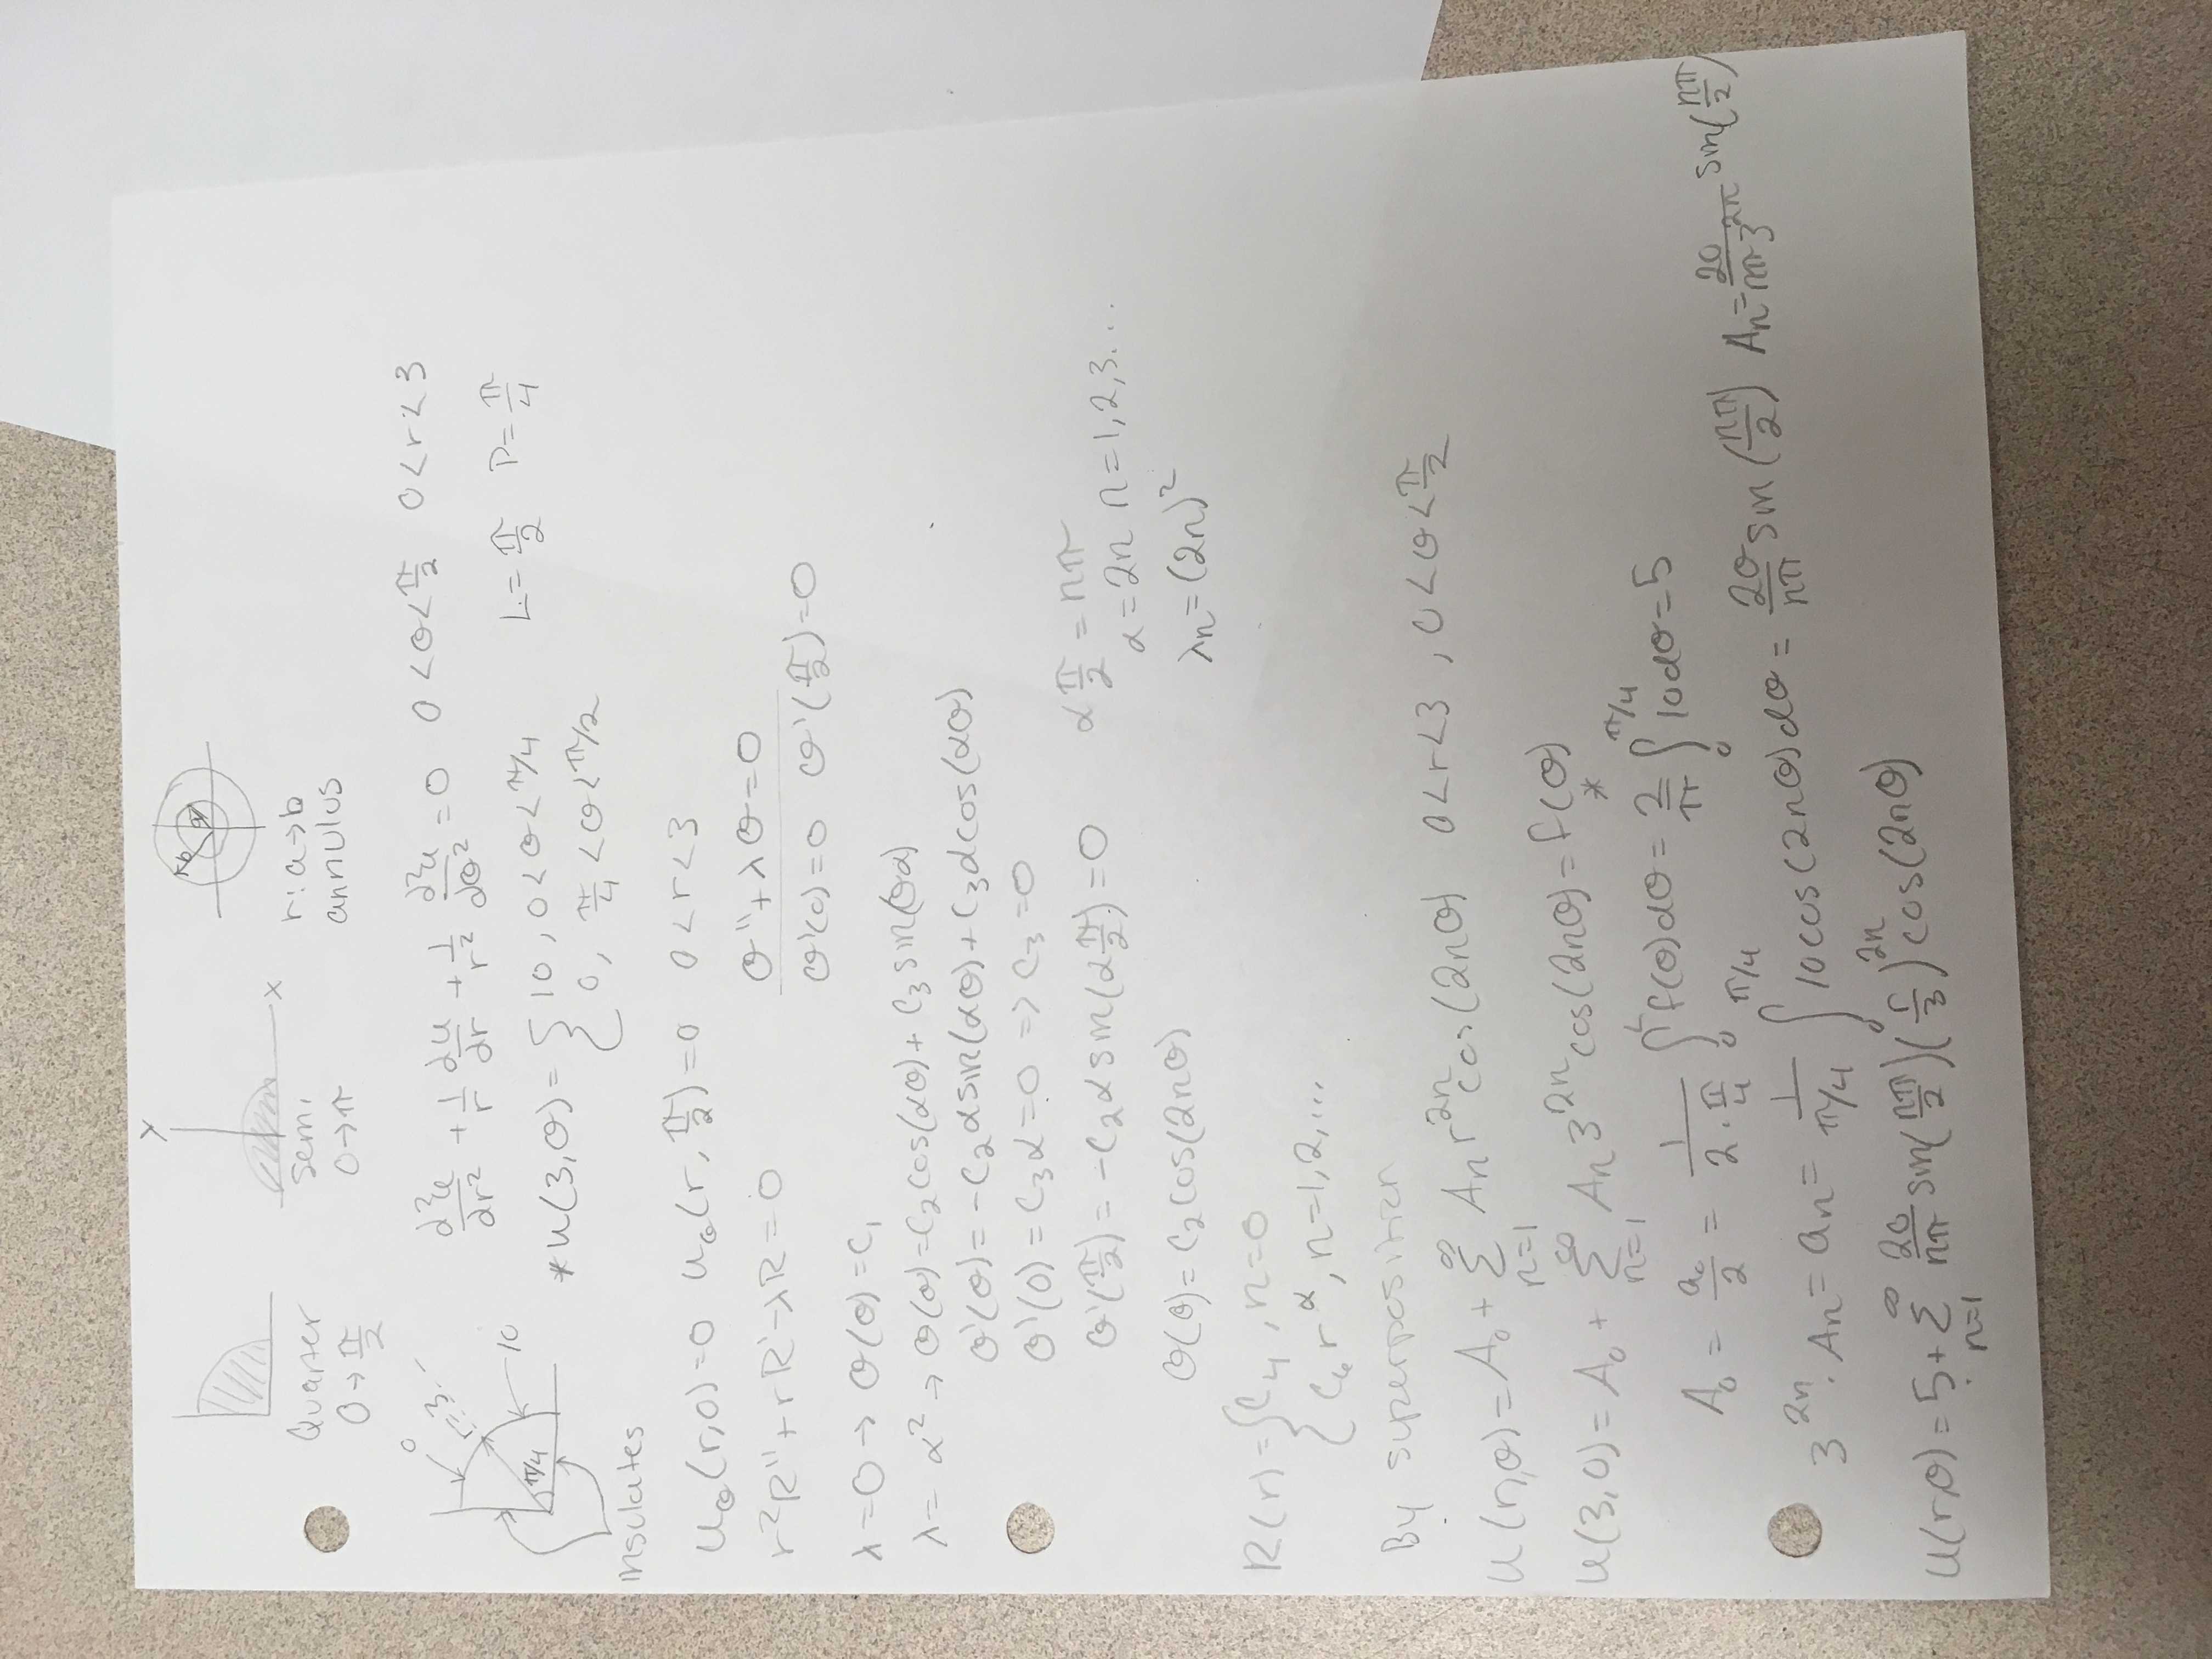 y
b a
x
Quarter Semi r: a→b
0→π/2 0→π annulus
0
r=3
10
π/4
insulates
∂²u/∂r² + 1/r ∂u/∂r + 1/r² ∂²u/∂θ² = 0 0<θ<π/2 0<r<3
*u(3,θ) = { 10, 0<θ<π/4
0, π/4<θ<π/2
L=π/2 P=π/4
u_θ(r,0)=0 u_θ(r,π/2)=0 0<r<3
r²R''+rR'-λR=0 Θ''+λΘ=0
Θ'(0)=0 Θ'(π/2)=0
λ=0→Θ(θ)=c₁
λ=α²→Θ(θ)=c₂cos(αθ)+c₃sin(θα)
Θ'(θ)=-c₂αsin(αθ)+c₃αcos(αθ)
Θ'(0)=c₃α=0 => c₃=0
Θ'(π/2)=-c₂αsin(απ/2)=0 απ/2=nπ
α=2n n=1,2,3...
Θ(θ)=c₂cos(2nθ) λn=(2n)²
R(r)={ c₄, n=0
c₆r^α, n=1,2,...
By superposition
u(r,θ)=A₀+∑_{n=1}^∞ An r^{2n}cos(2nθ) 0<r<3, 0<θ<π/2
u(3,θ)=A₀+∑_{n=1}^∞ An 3^{2n}cos(2nθ)=f(θ)
*
A₀=a₀/2=1/(2·π/4) ∫₀^L f(θ)dθ=2/π ∫₀^{π/4} 10dθ=5
3^{2n}·An=an=1/(π/4) ∫₀^{π/4} 10cos(2nθ)dθ=20/(nπ) sin(nπ/2) An=20/(nπ3^{2n}) sin(nπ/2)
u(r,θ)=5+∑_{n=1}^∞ 20/(nπ) sin(nπ/2)(r/3)^{2n}cos(2nθ)